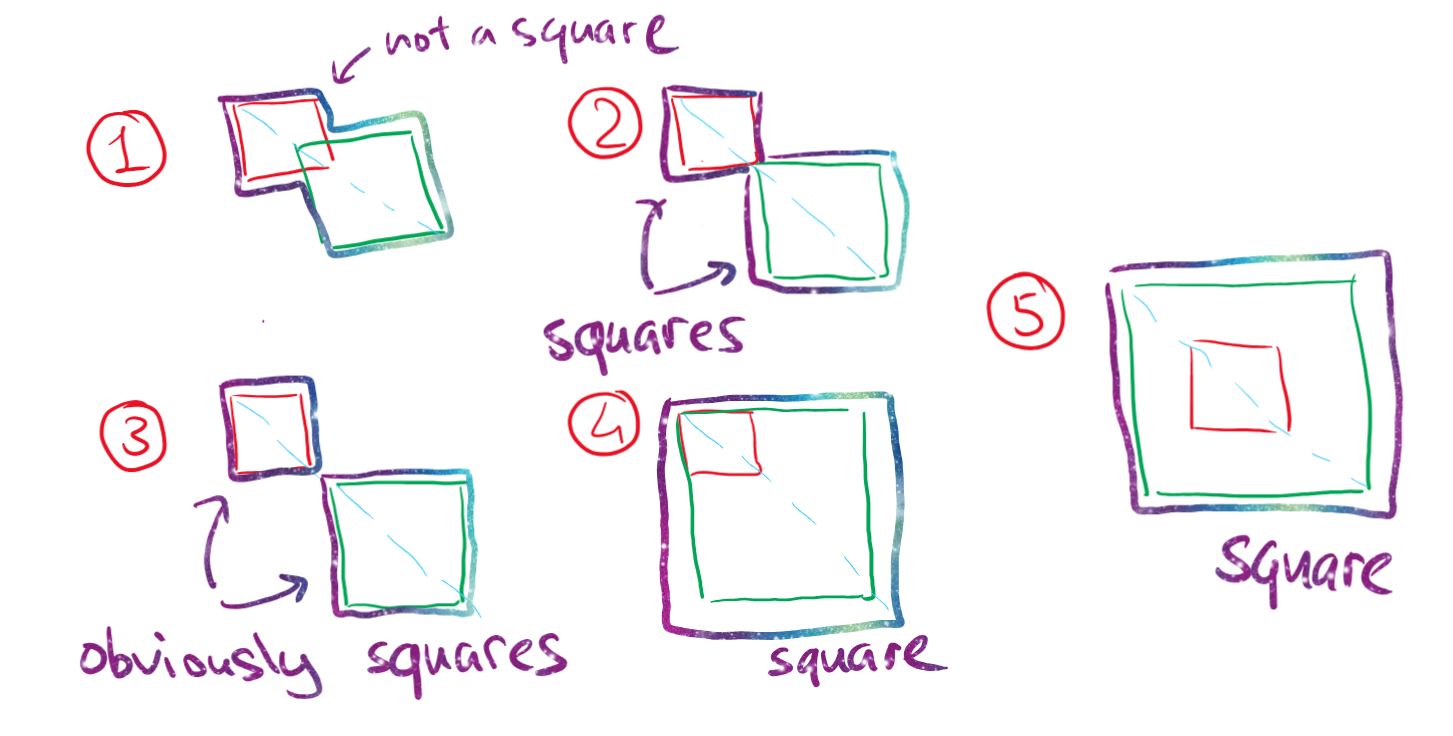 not a square
1
2
squares
3
obviously squares
4
square
5
square